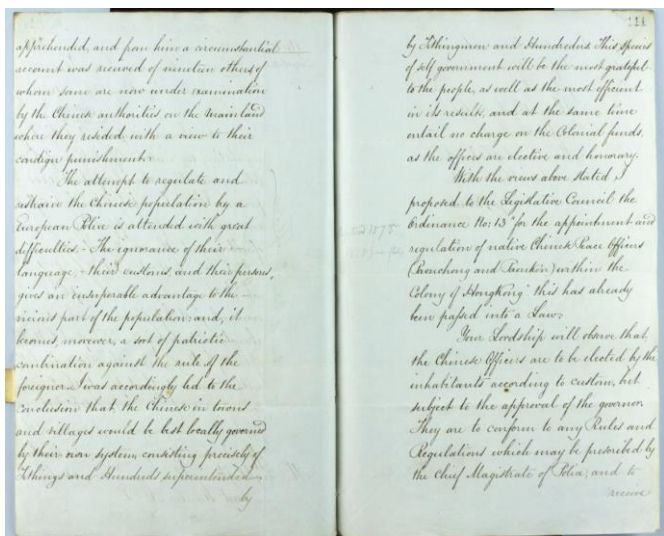 apprehended, and from him a circumstantial
account was received of nineteen others of
whom some are now under examination
by the Chinese authorities on the Mainland
where they resided, with a view to their
condign punishment.
The attempt to regulate and
restrain the Chinese population by a
European Police is attended with great
difficulties. The ignorance of their
language, their customs, and their persons,
gives an insuperable advantage to the
vicious part of the population: and, it
becomes, moreover, a sort of patriotic
combination against the rule of the
foreigner. I was accordingly led to the
conclusion that, the Chinese in towns
and villages would be best locally governed
by their own system, consisting precisely of
Tithings and Hundreds, superintended
by
114
by Tithingmen and Hundreders. This species
of self government will be the most grateful
to the people, as well as the most efficient
in its results, and at the same time
entail no charge on the Colonial funds,
as the offices are elective and honorary.
With the views above stated, I
proposed to the Legislative Council the
Ordinance No: 13 "for the appointment and
regulation of native Chinese Peace Officers
(Paouchong and Paoukea) within the
Colony of Hongkong" this has already
been passed into a Law.
Your Lordship will observe that,
the Chinese Officers are to be elected by the
inhabitants according to custom, but
subject to the approval of the governor.
They are to conform to any Rules and
Regulations which may be prescribed by
the Chief Magistrate of Police, and to
receive